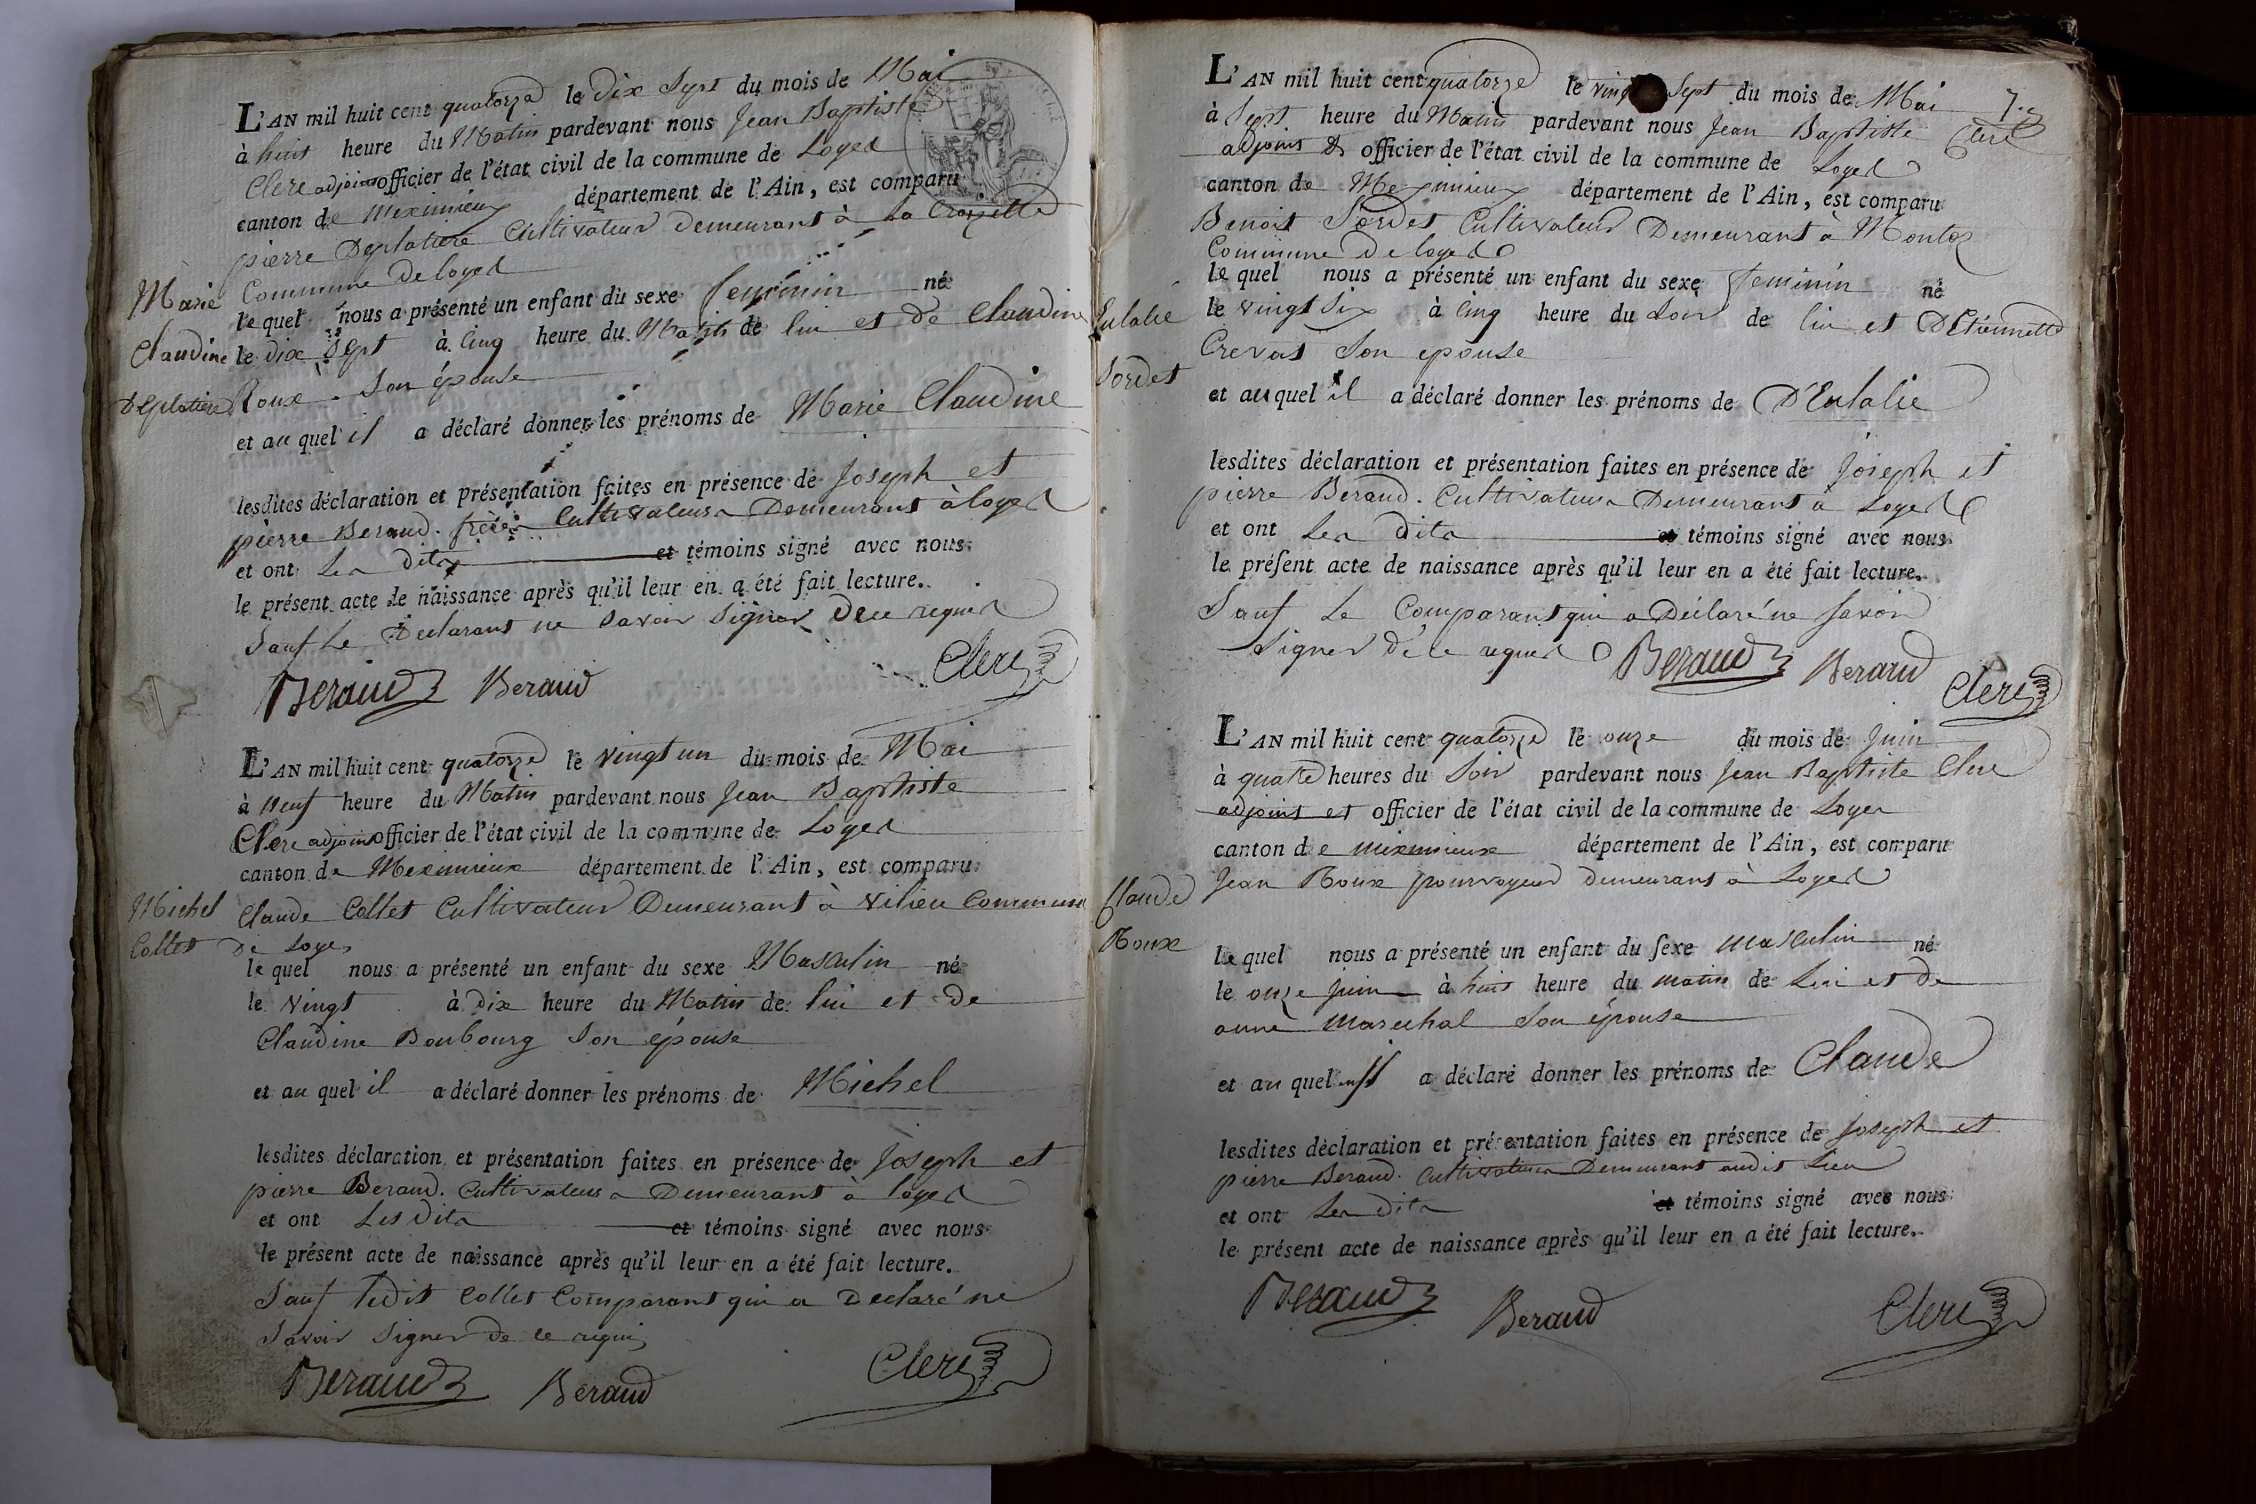 L'AN mil huit cent quatorze le dix Sept du mois de Mai
à huit heure du Matin pardevant nous Jean Baptiste
Clere adjoint officier de l'état civil de la commune de Loyes
canton de Meximieux département de l'Ain, est comparu
pierre Deplatiere Cultivateur Demeurant à La Crozette
Commune De loyes
le quel nous a présenté un enfant du sexe feminin né
le dix Sept à Cinq heure du Matin de lui et de Claudine
Roux Son épouse
et au quel il a déclaré donner les prénoms de Marie Claudine
lesdites déclaration et présentation faites en présence de Joseph et
pierre Beraud frères Cultivateurs Demeurant à loyes
et ont Les dits et témoins signé avec nous
le présent acte de naissance après qu'il leur en a été fait lecture.
Sauf Le Declarant ne Savoir Signer De ce requis
Beraud Beraud Clere
Marie
Claudine
Deplatiere
L'AN mil huit cent quatorze le vingt un du mois de Mai
à neuf heure du Matin pardevant nous Jean Baptiste
Clere adjoint officier de l'état civil de la commune de Loyes
canton de Meximieux département de l'Ain, est comparu
Claude Collet Cultivateur Demeurant à Vilieu Commune
de Loyes
le quel nous a présenté un enfant du sexe Masculin né
le Vingt à dix heure du Matin de lui et de
Claudine Boubourg Son épouse
et au quel il a déclaré donner les prénoms de Michel
lesdites déclaration et présentation faites en présence de Joseph et
pierre Beraud. Cultivateurs Demeurant à loyes
et ont Les dits et témoins signé avec nous
le présent acte de naissance après qu'il leur en a été fait lecture.
Sauf ledit Collet Comparant qui a Declaré ne
Savoir Signer de ce requis
Beraud Beraud Clere
Michel
Collet
L'AN mil huit cent quatorze le vingt Sept du mois de Mai
à Sept heure du Matin pardevant nous Jean Baptiste Clere
adjoint et officier de l'état civil de la commune de Loyes
canton de Meximieux département de l'Ain, est comparu
Benoit Sordet Cultivateur Demeurant à Montoz
Commune De loyes
le quel nous a présenté un enfant du sexe feminin né
le vingt Six à Cinq heure du Soir de lui et D'Etiennette
Crevat Son epouse
et au quel il a déclaré donner les prénoms de D'Eulalie
lesdites déclaration et présentation faites en présence de Joseph et
pierre Beraud. Cultivateurs Demeurant à Loyes
et ont Les dits et témoins signé avec nous
le présent acte de naissance après qu'il leur en a été fait lecture.
Sauf Le Comparant qui a Déclaré ne Savoir
Signer De ce requis Beraud Beraud Clere
Eulalie
Sordet
L'AN mil huit cent quatorze le onze du mois de Juin
à quatre heures du Soir pardevant nous Jean Baptiste Clere
adjoint et officier de l'état civil de la commune de Loyes
canton de meximieux département de l'Ain, est comparu
Jean Roux pourvoyeur demeurant à Loyes
le quel nous a présenté un enfant du sexe masculin né
le onze juin à huit heure du matin de Lui et de
anne marechal Son épouse
et au quel a déclaré donner les prénoms de Claude
lesdites déclaration et présentation faites en présence de Joseph et
pierre Beraud. Cultivateurs Demeurant audit Lieu
et ont Les dits et témoins signé avec nous
le présent acte de naissance après qu'il leur en a été fait lecture.
Beraud Beraud Clere
Claude
Roux